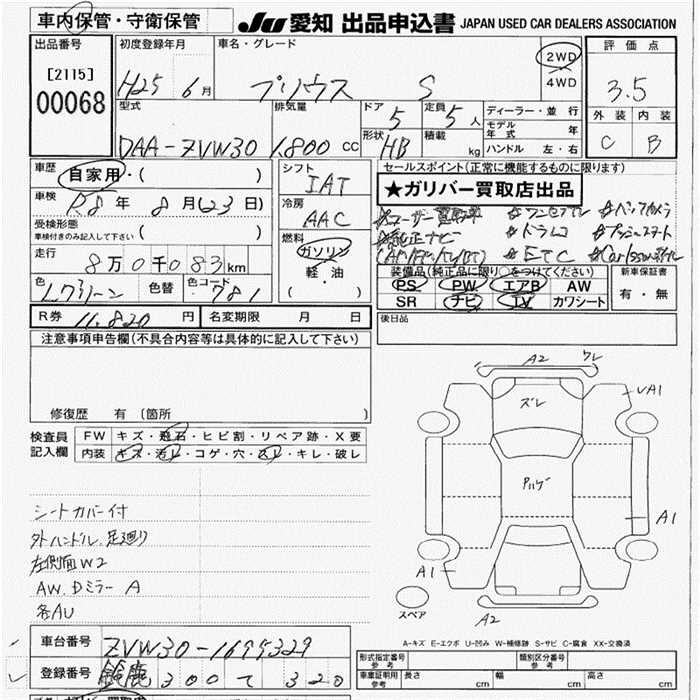 車内保管・守衛保管
JU 愛知 出品申込書 JAPAN USED CAR DEALERS ASSOCIATION
出品番号
[2115]
00068
初度登録年月
H25 6月
車名・グレード
プリウス S
2WD
4WD
評価点
3.5
外装 内装
C B
型式
DAA-ZVW30
排気量
1.800 cc
ドア
5
定員
5人
形状
HB
積載
kg
ディーラー・並行
モデル年式 年
ハンドル 左・右
車歴
自家用・( )
車検
R8年 8月(23日)
受検形態
車検付きのみ記入して下さい ( )
走行
8万0千083km
色 Lグリーン 色替 色コード 781
シフト
IAT
冷房
AAC
燃料
ガソリン
軽・油
( ・ )
セールスポイント(正常に機能するものに限ります)
★ガリバー買取店出品
ユーザー買取車 ワンセグTV バックカメラ
純正ナビ ドラレコ プッシュスタート
ETC
装備品(純正品に限り○をつけてください)
PS PW エアB AW
SR ナビ TV カワシート
新車保証書
有・無
後日品
R券 11,820円 名変期限 月 日
注意事項申告欄(不具合内容等は具体的に記入して下さい)
修復歴 有 (箇所 )
検査員記入欄
FW キズ・飛石・ヒビ割・リペア跡・X要
内装 キズ・汚レ・コゲ・穴・スレ・キレ・破レ
シートカバー付
外ハンドル、足廻り
左側面W2
AW.Dミラー A
各AU
A2 ワレ
ズレ
UA1
A1
A1
A2
スペア
A-キズ E-エクボ U-凹み W-補修跡 S-サビ C-腐食 XX-交換済
車台番号 ZVW30-1699329
登録番号 鈴鹿 300 て 320
形式指定番号 参考
類別区分番号 参考
車庫証明用 参考 長さ cm 幅 cm 高さ cm